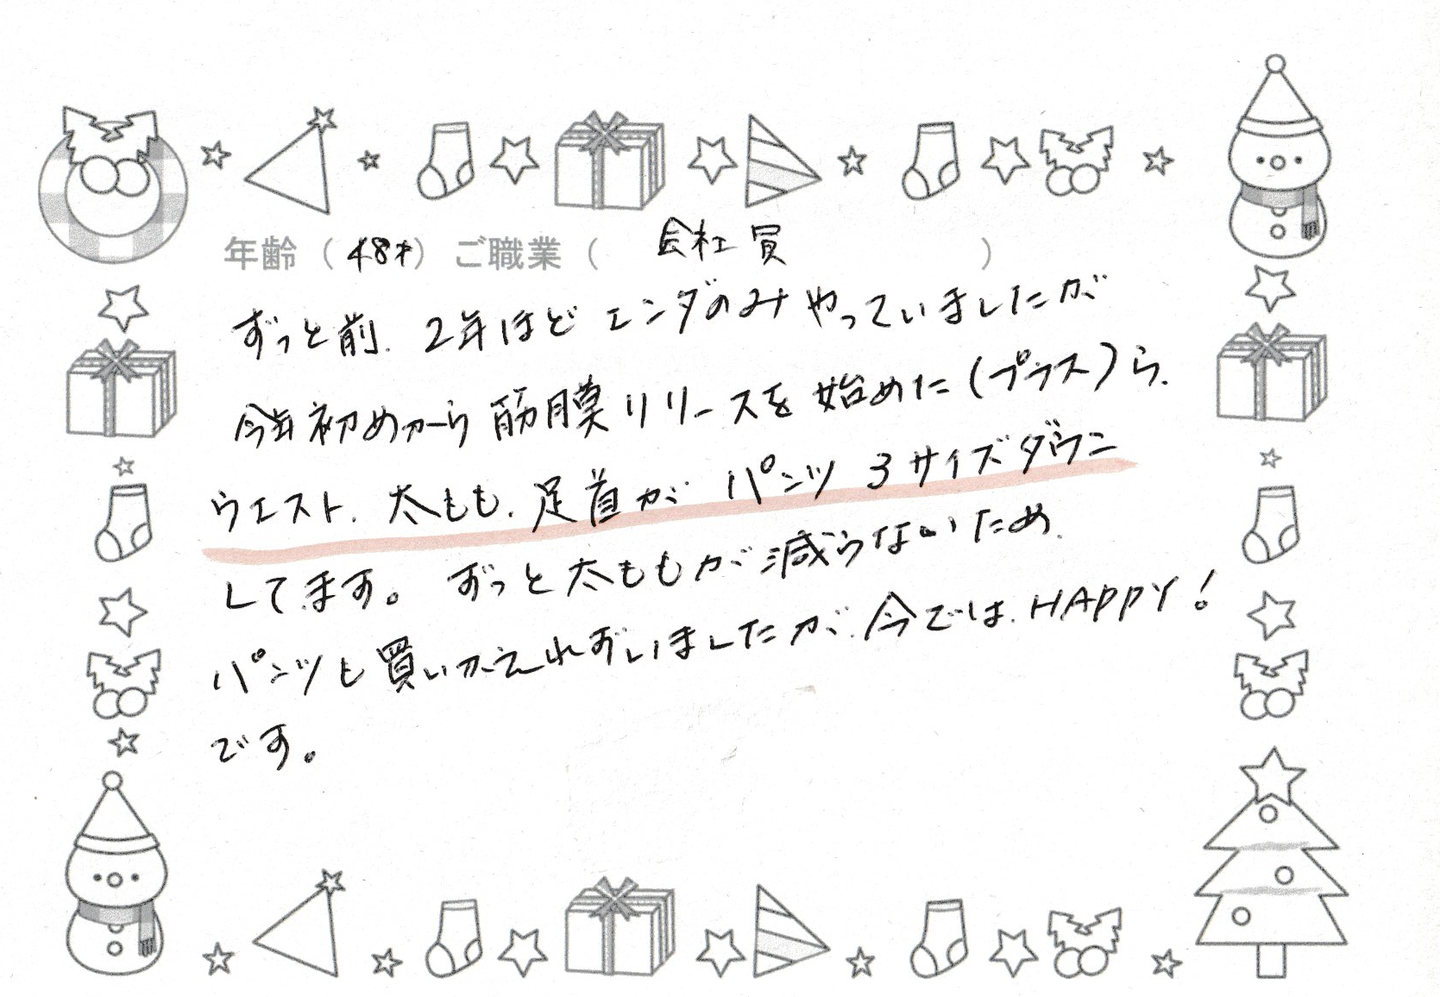 年齢（48才）ご職業（ 会社員 ）
ずっと前、2年ほど エンダのみ やっていましたが
今年初めから 筋膜リリースを 始めた（プラス）ら、
ウエスト、太もも、足首が パンツ 3サイズダウン
してます。ずっと太ももが減らないため、
パンツも買いかえれずいましたが、今では、HAPPY！
です。